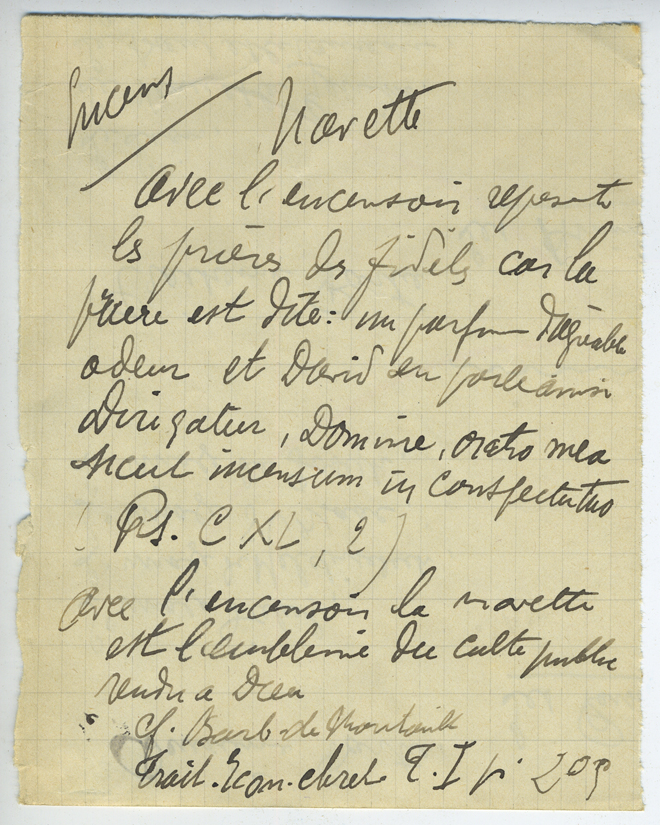 Encens
Navette
avec l'encensoir represente
les prières des fidèles car la
prière est dite : un parfum d'agréable
odeur et David en parle ainsi
Dirigatur, Domine, oratio mea
sicut incensum in conspectu tuo
(Ps. CXL, 2)
avec l'encensoir la navette
est l'emblème du culte public
rendu a Dieu
Cf. Barb. de Montault
Trait. Icon. chret. T. I p. 209